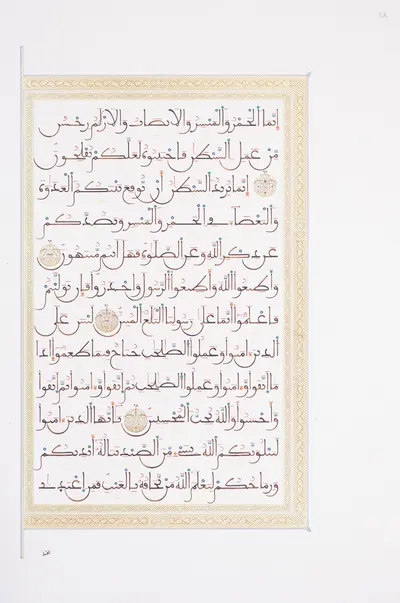 إِنَّمَا الْخَمْرُ وَالْمَيْسِرُ وَالْأَنصَابُ وَالْأَزْلَٰمُ رِجْسٌ
مِّنْ عَمَلِ الشَّيْطَٰنِ فَاجْتَنِبُوهُ لَعَلَّكُمْ تُفْلِحُونَ
إِنَّمَا يُرِيدُ الشَّيْطَٰنُ أَن يُوقِعَ بَيْنَكُمُ الْعَدَٰوَةَ
وَالْبَغْضَاءَ فِي الْخَمْرِ وَالْمَيْسِرِ وَيَصُدَّكُمْ
عَن ذِكْرِ اللَّهِ وَعَنِ الصَّلَوٰةِ فَهَلْ أَنتُم مُّنتَهُونَ
وَأَطِيعُوا اللَّهَ وَأَطِيعُوا الرَّسُولَ وَاحْذَرُوا فَإِن تَوَلَّيْتُمْ
فَاعْلَمُوا أَنَّمَا عَلَىٰ رَسُولِنَا الْبَلَٰغُ الْمُبِينُ لَيْسَ عَلَى
الَّذِينَ ءَامَنُوا وَعَمِلُوا الصَّٰلِحَٰتِ جُنَاحٌ فِيمَا طَعِمُوا إِذَا
مَا اتَّقَوا وَّءَامَنُوا وَعَمِلُوا الصَّٰلِحَٰتِ ثُمَّ اتَّقَوا وَّءَامَنُوا ثُمَّ اتَّقَوا
وَّأَحْسَنُوا وَاللَّهُ يُحِبُّ الْمُحْسِنِينَ يَٰأَيُّهَا الَّذِينَ ءَامَنُوا
لَيَبْلُوَنَّكُمُ اللَّهُ بِشَيْءٍ مِّنَ الصَّيْدِ تَنَالُهُ أَيْدِيكُمْ
وَرِمَاحُكُمْ لِيَعْلَمَ اللَّهُ مَن يَخَافُهُ بِالْغَيْبِ فَمَنِ اعْتَدَىٰ